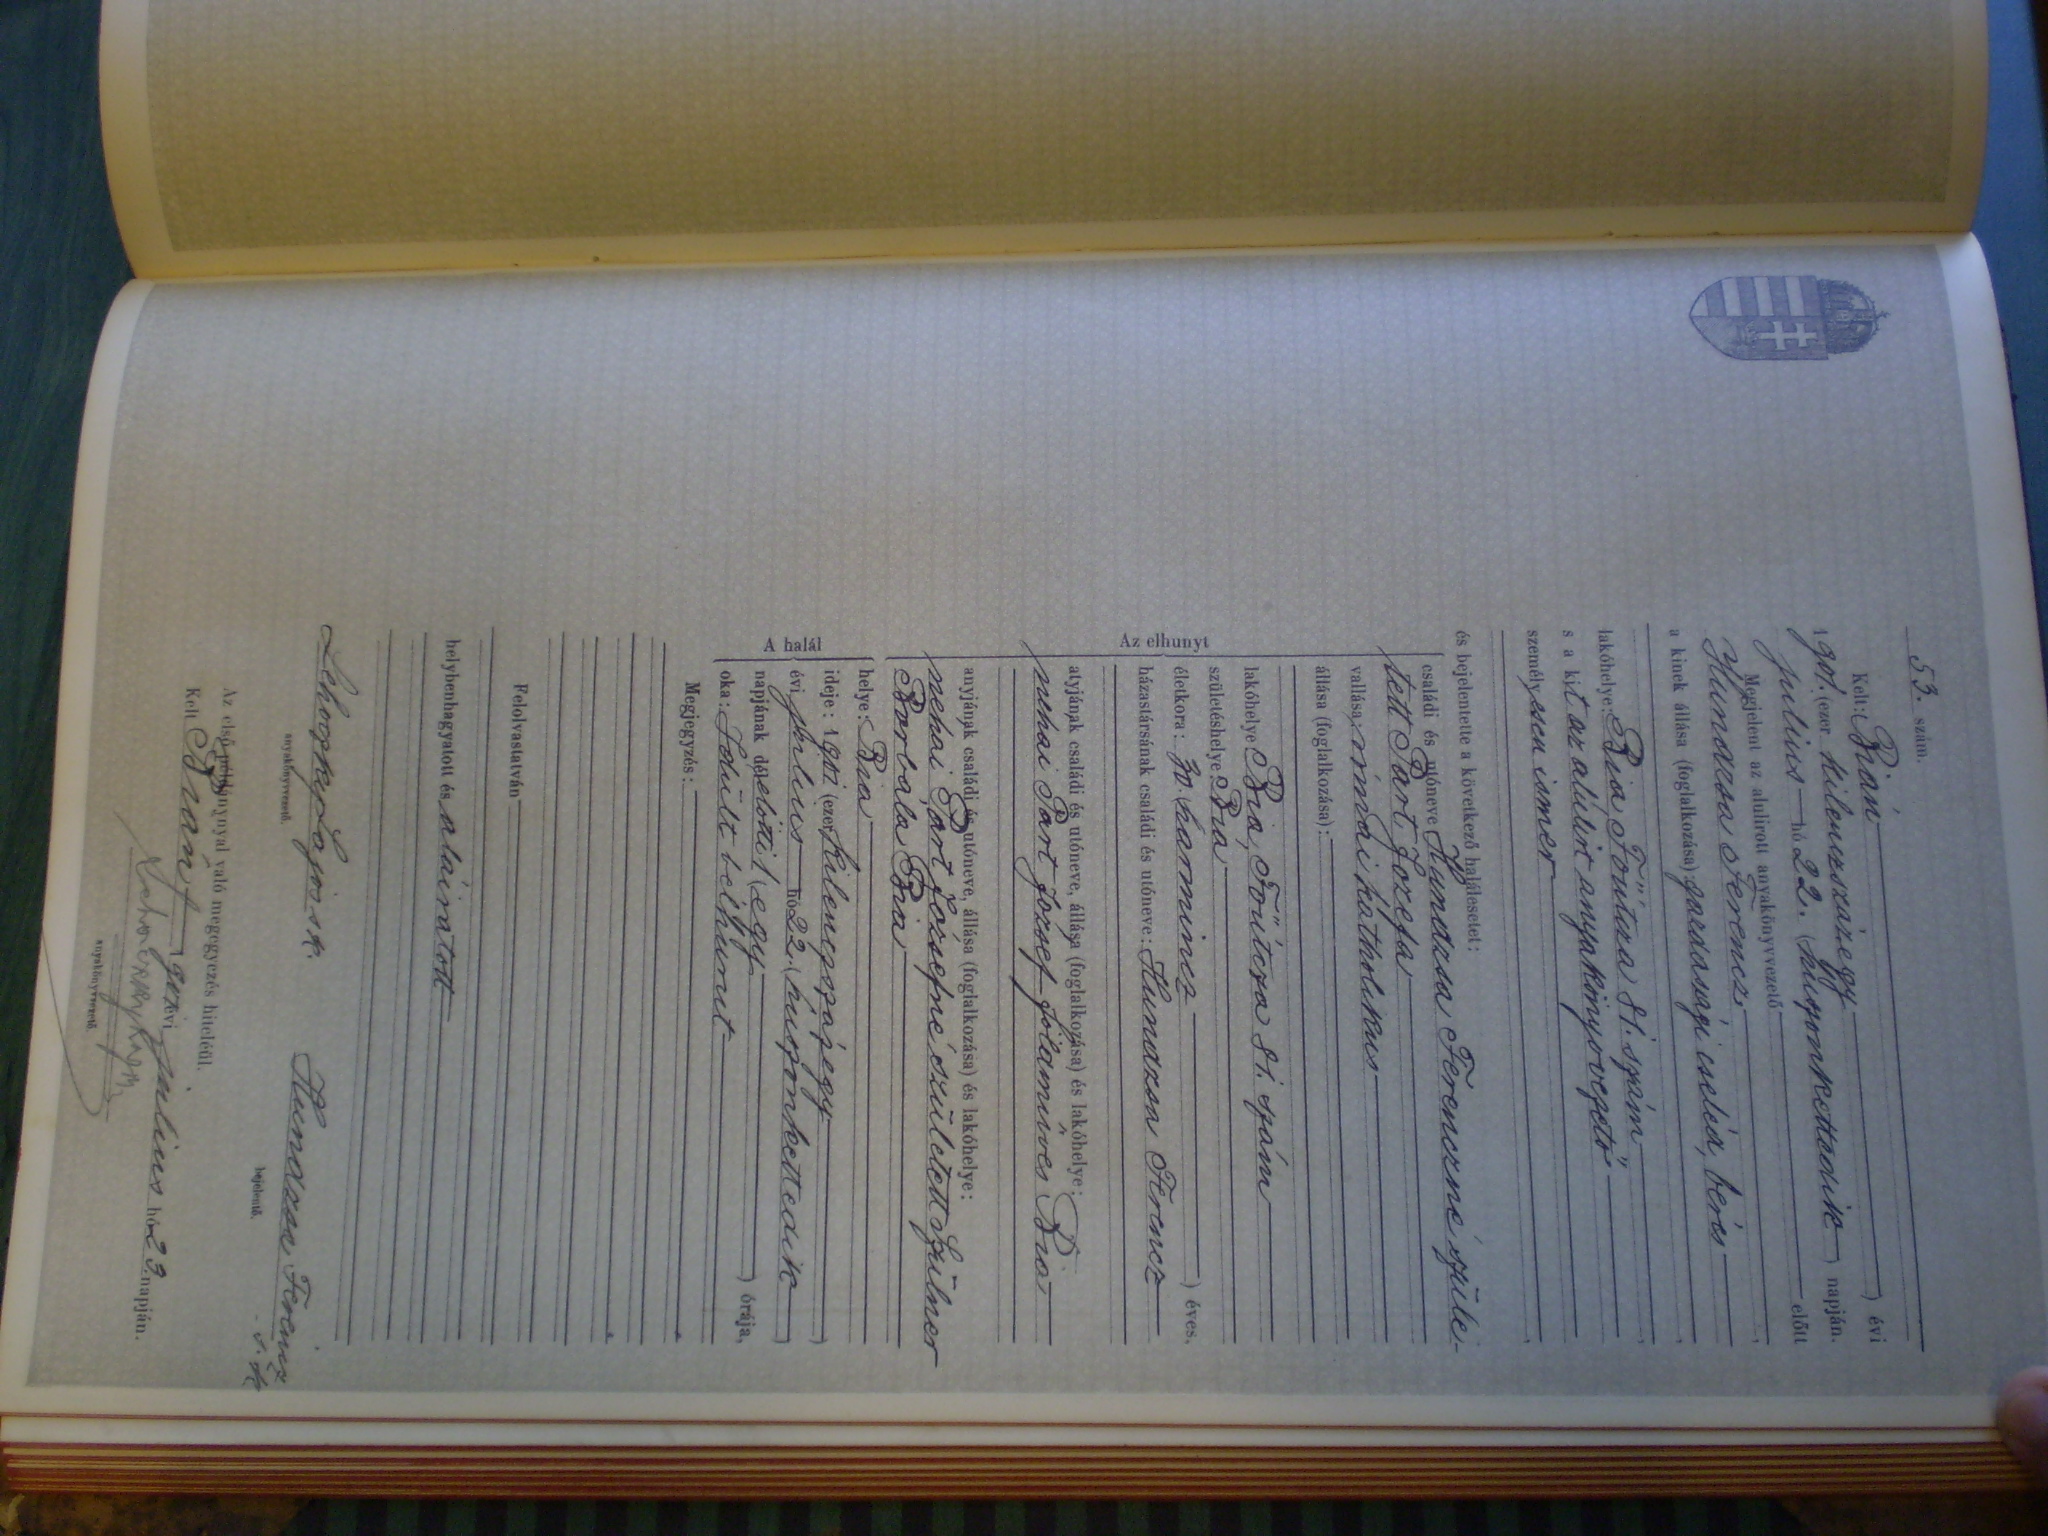 53. szám.
Kelt: Bián ) évi
1901. (ezer kilenczszázegy
julius hó 22. (huszonkettedik ) napján.
Megjelent az alulirott anyakönyvvezető előtt
Hundzsa Ferencz,
a kinek állása (foglalkozása) gazdasági cseléd, béres
lakóhelye: Bia, Főútcza 81. szám
s a kit az alúlirt anyakönyvvezető
személyesen ismer
és bejelentette a következő halálesetet:
Az elhunyt
családi és utóneve Hundzsa Ferenczné szüle-
tett Part Jozefa
vallása: római katholikus
állása (foglalkozása):
lakóhelye Bia, Főútcza 81. szám
születéshelye: Bia
életkora: 30. (harmincz ) éves,
házastársának családi és utóneve: Hundzsa Ferencz
atyjának családi és utóneve, állása (foglalkozása) és lakóhelye:
néhai Part József földmíves Bia
anyjának családi és utóneve, állása (foglalkozása) és lakóhelye:
néhai Part Józsefné született
Borbála Bia
A halál
helye: Bia
ideje: 1901 (ezer kilenczszázegy )
évi julius hó 22. (huszonkettedik )
napjának délelőtti 1 (egy ) órája,
oka: Szült bélhurut
Megjegyzés:
Felolvastatván
helybenhagyatott és aláiratott
Lehoczky Lajos s.k. Hundzsa Ferencz s. k.
anyakönyvvezető. bejelentő.
Az első példánynyal való megegyezés hiteléül.
Kelt Bián, 1901 évi julius hó 23. napján.
anyakönyvvezető.